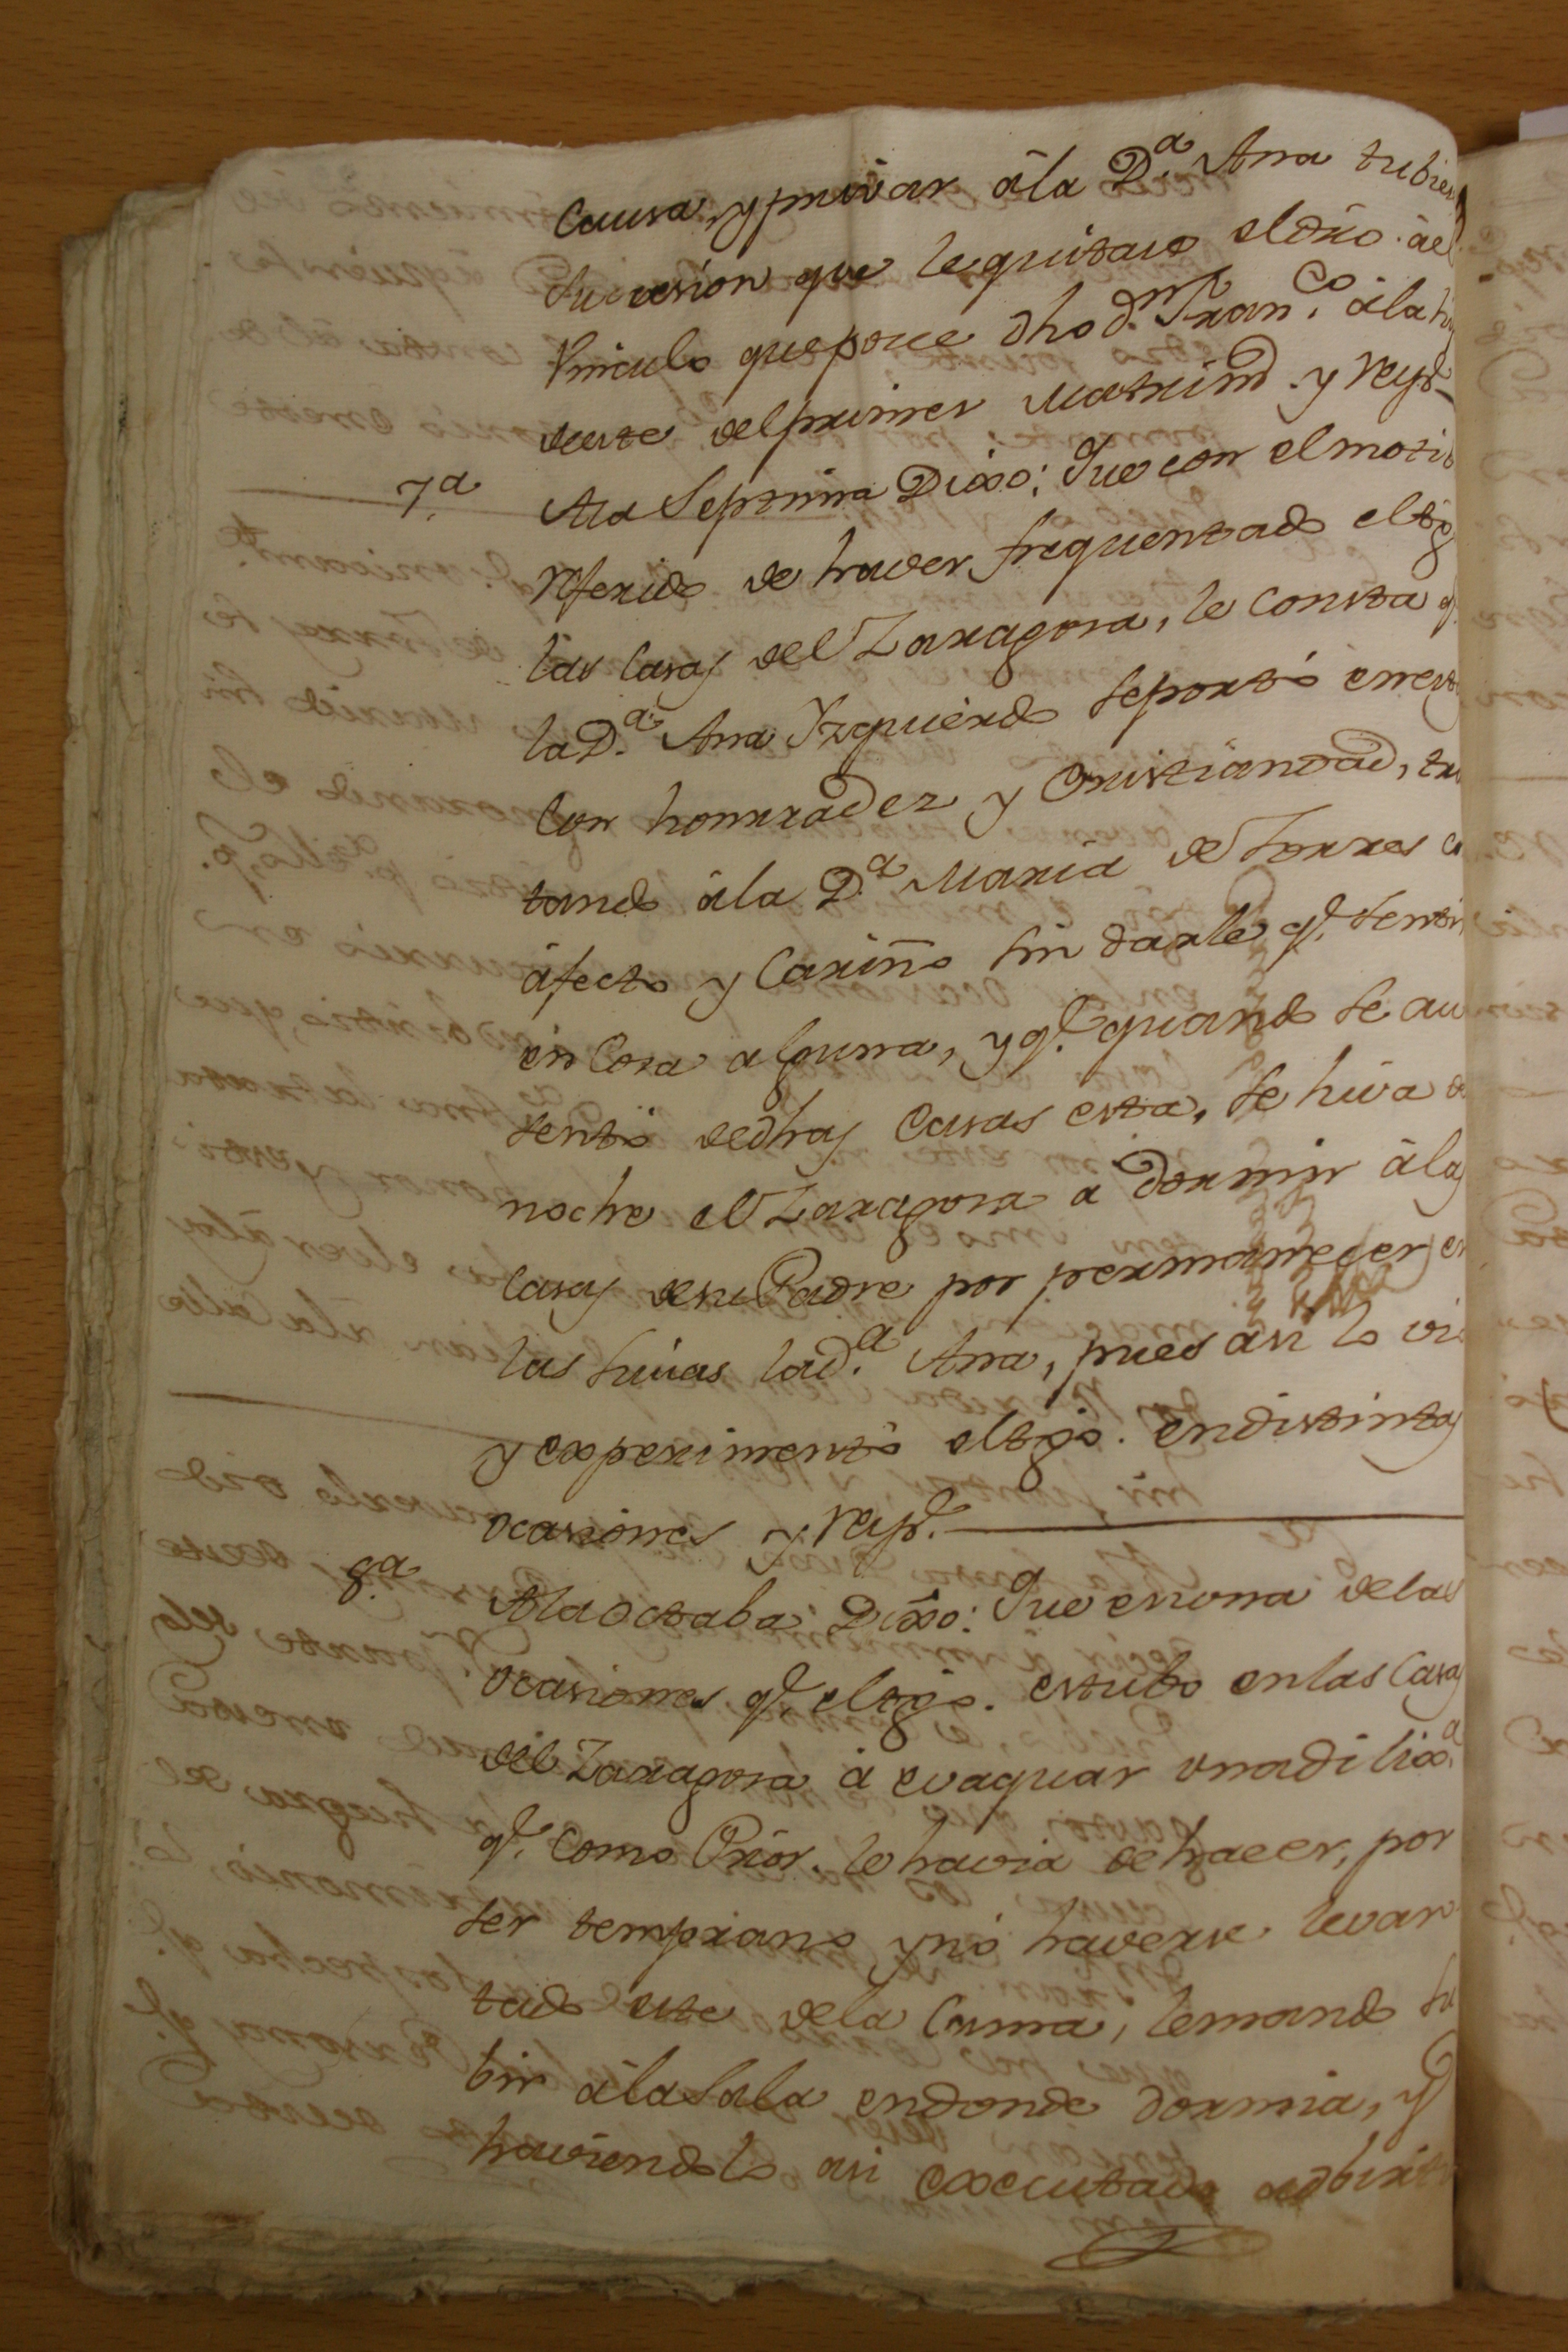 Causa, y privar â la D.ª Ana tubie
Sucesion que le quitase el dr̃o. âel
Vinculo que posee dho d.n Fran.co â la hi
deeste del primer Matrimo. y resp.
7.ª A la Septima Dixo: Que con el moti
referido de haver frequentado el tgo
las Casas del Zaragoza, le consta q.e
la D.ª Ana Yzquierdo se portó en est
con honrradez y Cristiandad, tra
tando â la D.ª Maria de Torres c
afecto y Cariño sin darle q.e sentir
en Cosa alguna, y q.e quando se au
sentó de dhas Casas esta, se hiva de
noche el Zaragoza a dormir â las
Casas de su Padre por permanecer en
las suias la d.ª Ana, pues asi lo vio
y experimentó el tgo. en distintas
ocasiones y resp.
8.ª A la octaba Dixo: Que en una de las
ocasiones q.e el tgo. estubo en las Casas
del Zaragoza â evaquar una dilix.ª
q.e como Prior le havia de hacer, por
ser temprano y nó haverse levan
tado este de la Cama, le mandó su
bir â la Sala en donde dormia, y
haviendolo asi executado adbirti